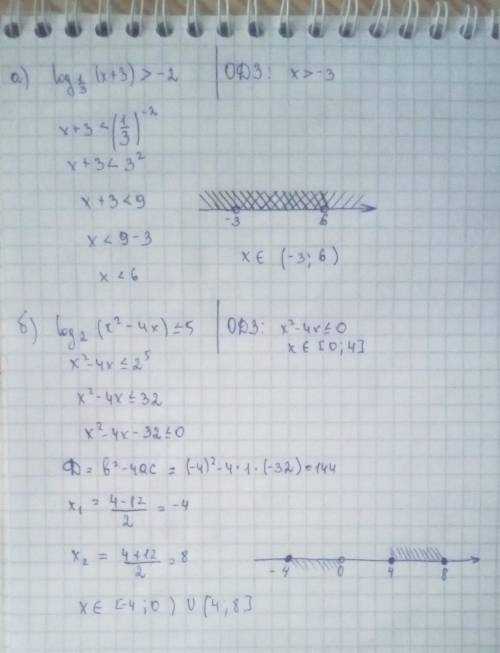 а) log 1/3 (x+3) > -2 | ОДЗ: x > -3
x+3 < (1/3)^-2
x+3 < 3^2
x+3 < 9
x < 9-3
x < 6
-3 6
x ∈ (-3; 6)
б) log₂ (x²-4x) ≤ 5 | ОДЗ: x²-4x ≤ 0
x ∈ [0; 4]
x²-4x ≤ 2⁵
x²-4x ≤ 32
x²-4x-32 ≤ 0
D = b²-4ac = (-4)²-4·1·(-32) = 144
x₁ = (4-12)/2 = -4
x₂ = (4+12)/2 = 8
-4 0 4 8
x ∈ [-4; 0) ∪ [4; 8]